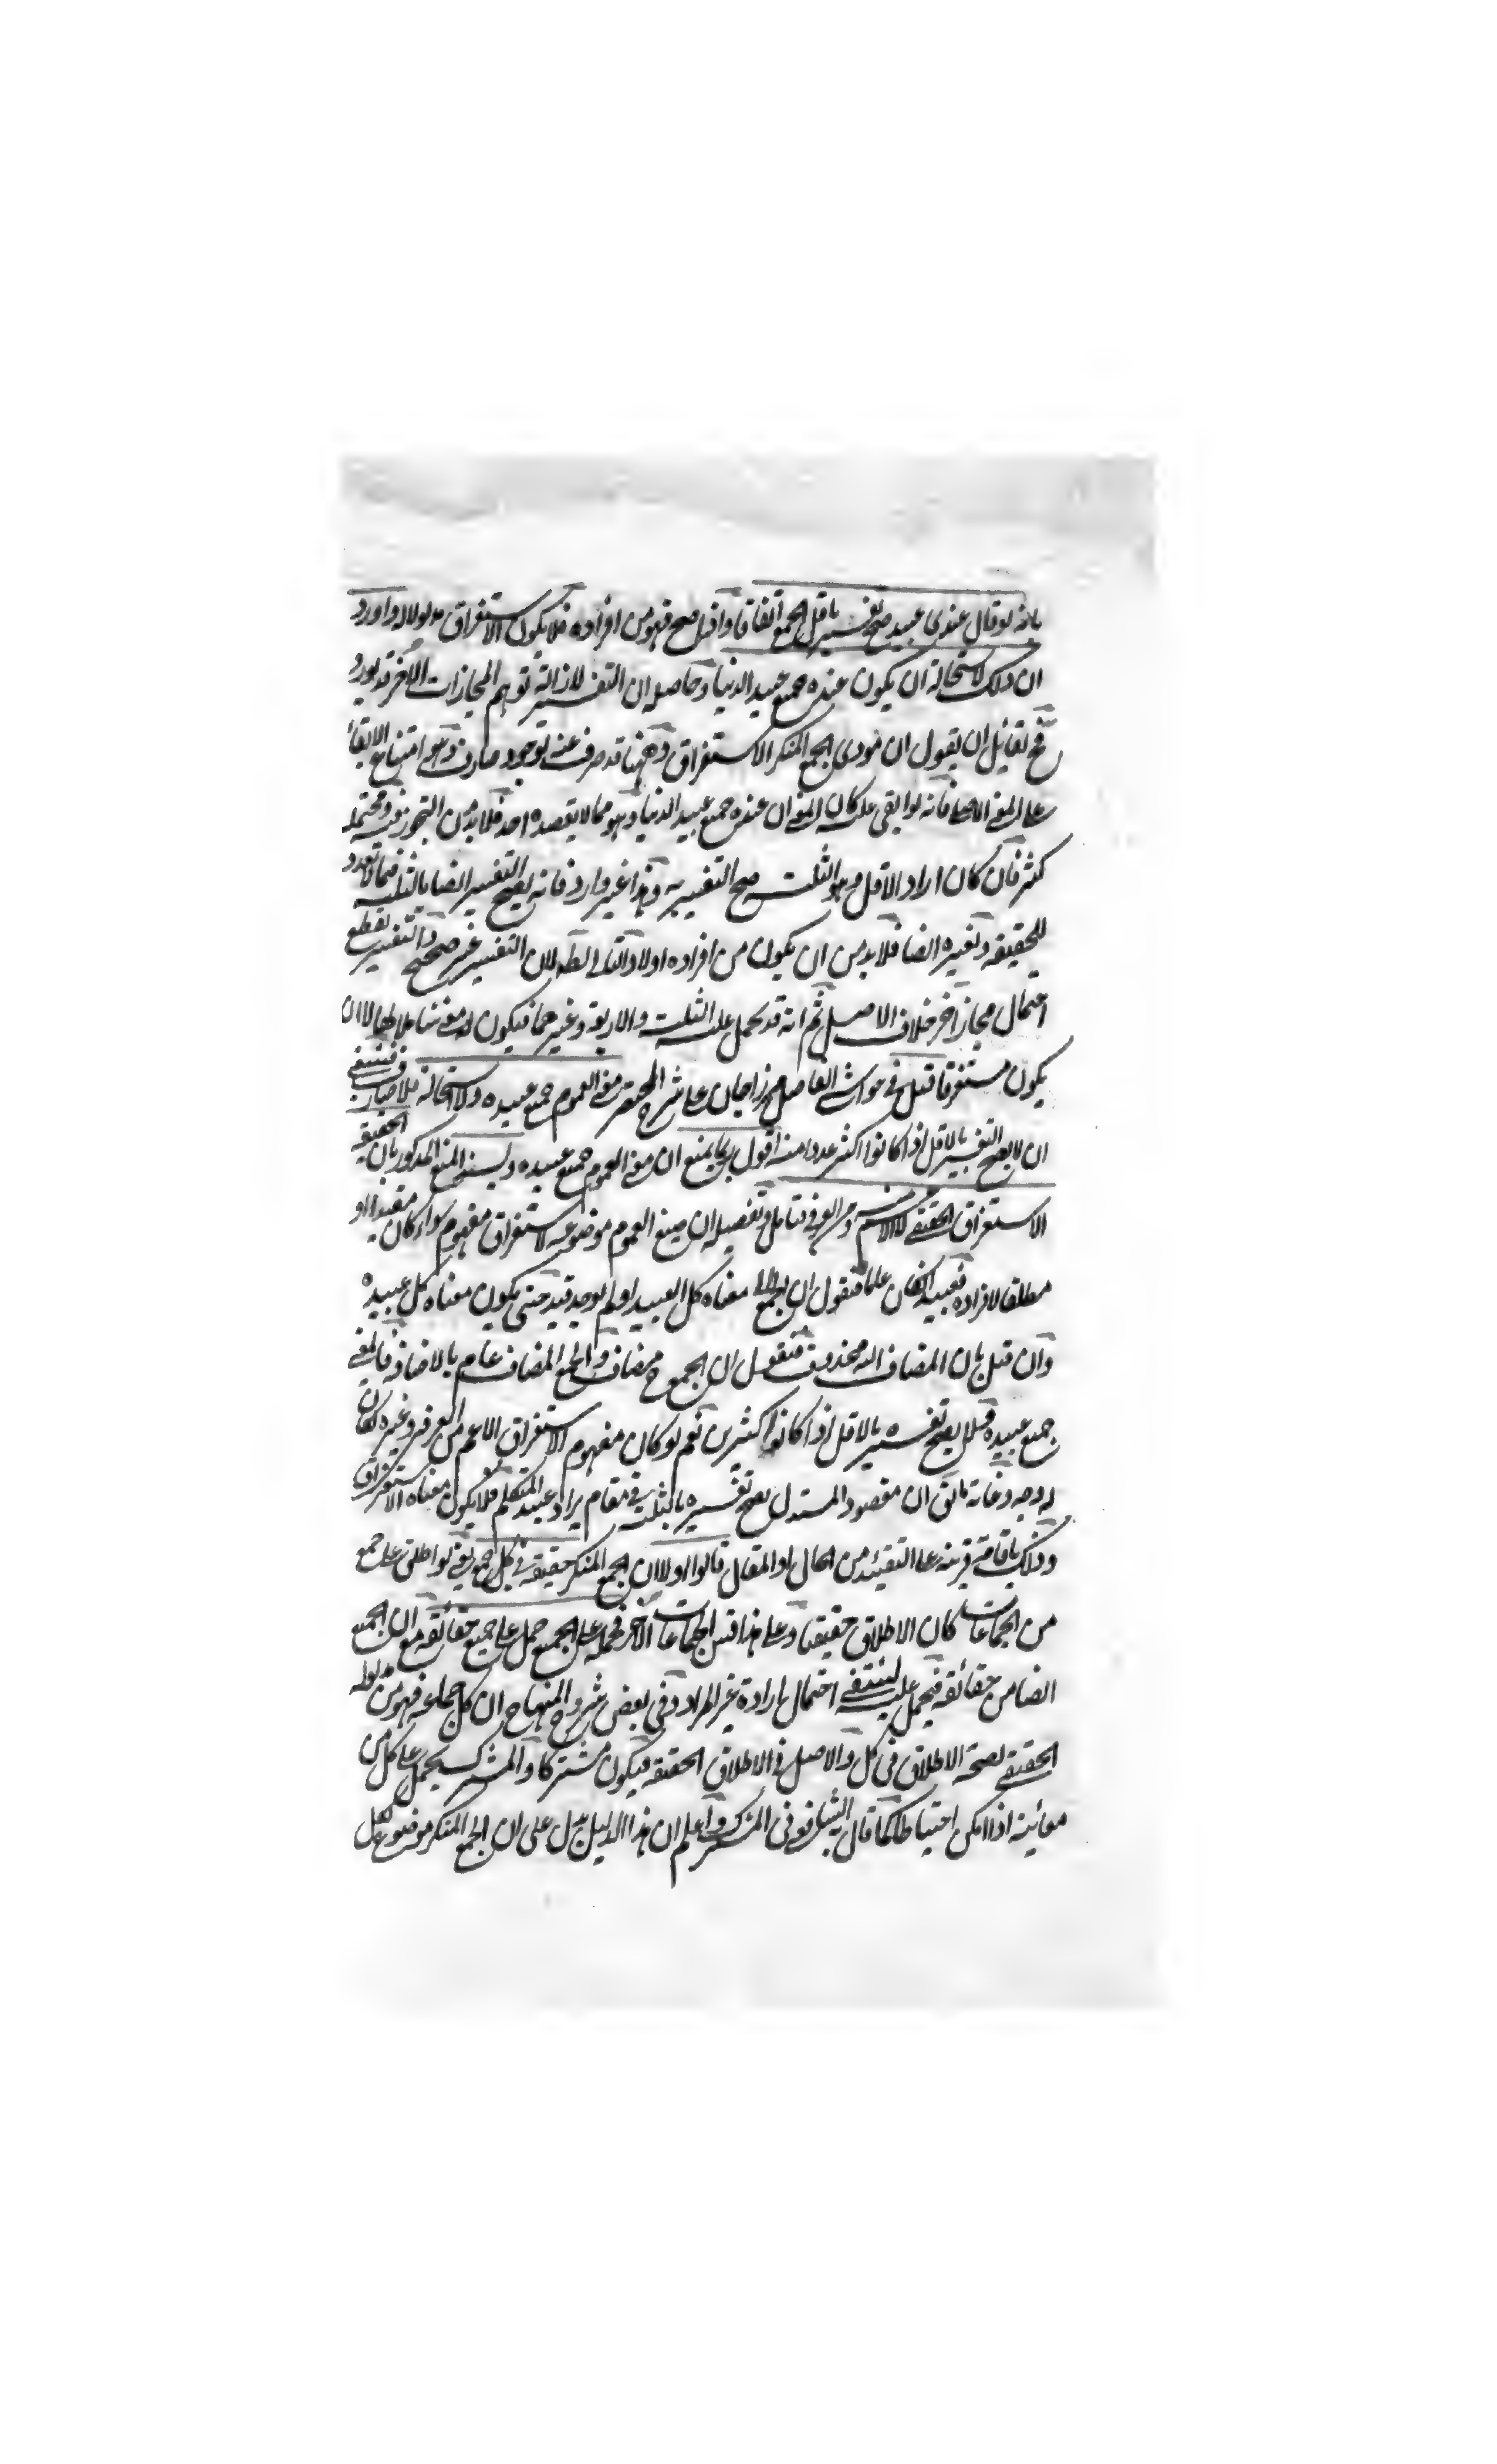 بانه لو قال عندي عبيد صح تفسيره باقل الجمع اتفاقا واقل صح فهو من افراده فلا يكون الاستغراق مدلولا له واورد
ان ذلك لاستحالة ان يكون عنده جميع عبيد الدنيا وحاصله ان التفسير لازالة توهم المجازات الاخر قد يورد
فح لقائل ان يقول ان مودى الجمع المنكر الاستغراق وههنا قد صرف عنه لوجود صارف وهو امتناع الابقاء
على المعنى الاصلي فانه لو ابقى عليه كان المعنى ان عنده جميع عبيد الدنيا وهو مما لا يقصده احد فلا بد من التجوز فيه ومحتمله
كثير فان كان اراد الاقل وهو الثلث صح التفسير به وهذا غير وارد فانه يصح التفسير ايضا بالثلثة فيما
للحقيقة ولغيره ايضا فلا بد من ان يكون من افراده اولا والتالي لان التفسير غير صحيح والتفسير يقطع
احتمال مجاز آخر خلاف الاصل ثم انه قد يحمل على الثلث والاربعة وغيرهما فيكون له معنى شاملا لها لا ان
يكون مستغرقا قيل في حواشي الفاضل ميرزاجان على شرح المختصر معنى العموم جميع عبيده ولا استحالة فلا صارف فينبغي
ان لا يصح التفسير بالاقل اذا كانوا اكثر عددا منه اقول ربما يمنع ان معنى العموم جميع عبيده ويسند المنع المذكور بان الحقيقة
الاستغراق الحقيقي لا الاعم منه ومن العرفي فتامل وتفصيله ان صيغ العموم موضوعة لاستغراق مفهوم سواء كان مقيدا او
مطلقا لافراده فعبيد اذا كان عاما فنقول ان الجمع معناه كل العبيد اولم يوجد قيد حتى يكون معناه كل عبيده
وان قيل بان المضاف اليه محذوف فنقول ان الجموع ح مضاف والجمع المضاف عام بالاضافة فالمعنى
جميع عبيده فلا يصح تفسيره بالاقل اذا كانوا كثيرين نعم لو كان مفهوم الاستغراق الاعم من العرفي وغيره لكان
له وجه وغاية ما يق ان مقصود المستدل يصح تفسيره بالثلث في مقام يراد عبيد المتكلم فلا يكون معناه الاستغراق
وذلك باقامة قرينة على التقييد من الحال او المقال قالوا اولا ان الجمع المنكر حقيقة في كل جمع يعني لو اطلق على جمع
من الجماعات كان الاطلاق حقيقيا وعلى هذا قس الجماعات الاخر فحمله على الجميع حمل على جميع حقائقه مع ان الجميع
ايضا من حقائقه فيحمل عليه لينتفي احتمال ارادة غير المراد وفي بعض شروح المنهاج ان كل جماعة فهو من مدلوله
الحقيقي لصحة الاطلاق في كل والاصل في الاطلاق الحقيقة فيكون مشتركا والمشترك يحمل على كل من
معانيه اذا امكن احتياطا كما قال الشافعي في المشترك واعلم ان هذا الدليل يدل على ان الجمع المنكر موضوع لكل